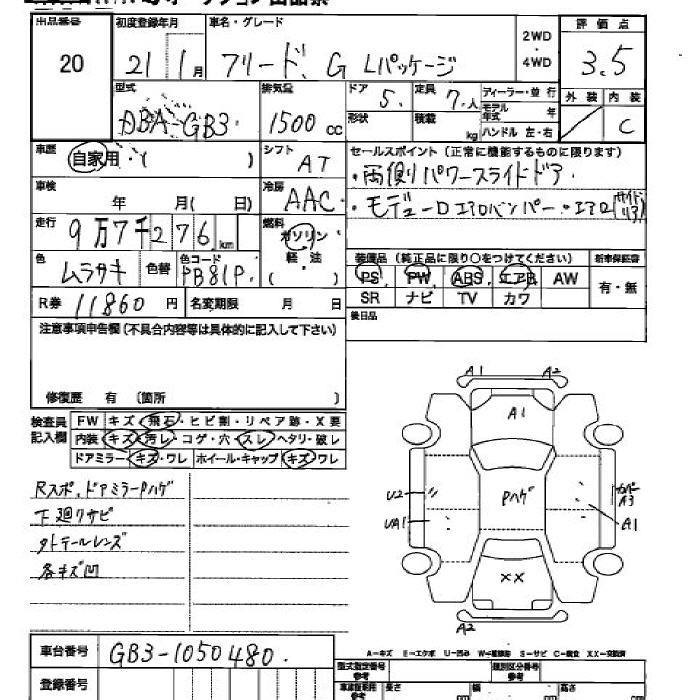 出品番号 20
初度登録年月 21 1月
車名・グレード フリード G Lパッケージ
2WD
・
4WD
評価点 3.5
外装 内装 C
型式 DBA-GB3
排気量 1500 cc
ドア 5
定員 7人
ディーラー・並行
モデル年式 年
形状
積載 kg
ハンドル 左・右
車歴 自家用・( )
シフト AT
セールスポイント(正常に機能するものに限ります)
・両側パワースライドドア
・モデューロエアロバンパー・エアロ
車検 年 月( 日)
冷房 AAC
走行 9万7千276km
燃料 ガソリン
軽・油
( )
色 ムラサキ
色替
色コード PB81P
装備品(純正品に限り○をつけてください)
新車保証書
PS PW ABS エアB AW
有・無
SR ナビ TV カワ
R券 11860円
名変期限 月 日
後日品
注意事項申告欄(不具合内容等は具体的に記入して下さい)
修復歴 有 〔箇所 〕
検査員記入欄
FW キズ・飛石・ヒビ割・リペア跡・X要
内装 キズ・汚レ・コゲ・穴・スレ・ヘタリ・破レ
ドアミラー キズ・ワレ ホイール・キャップ キズ・ワレ
Rスポ、ドアミラーPハゲ
下廻りサビ
タトテールレンズ
各キズ凹
A1 A2
A1
U2
UA1
Pハゲ
カバー
A3
A1
XX
A2
A-キズ E-エクボ U-凹み W-補修跡 S-サビ C-腐食 XX-交換済
車台番号 GB3-1050480
登録番号
型式指定番号 参考
類別区分番号 参考
長さ cm 幅 cm 高さ cm